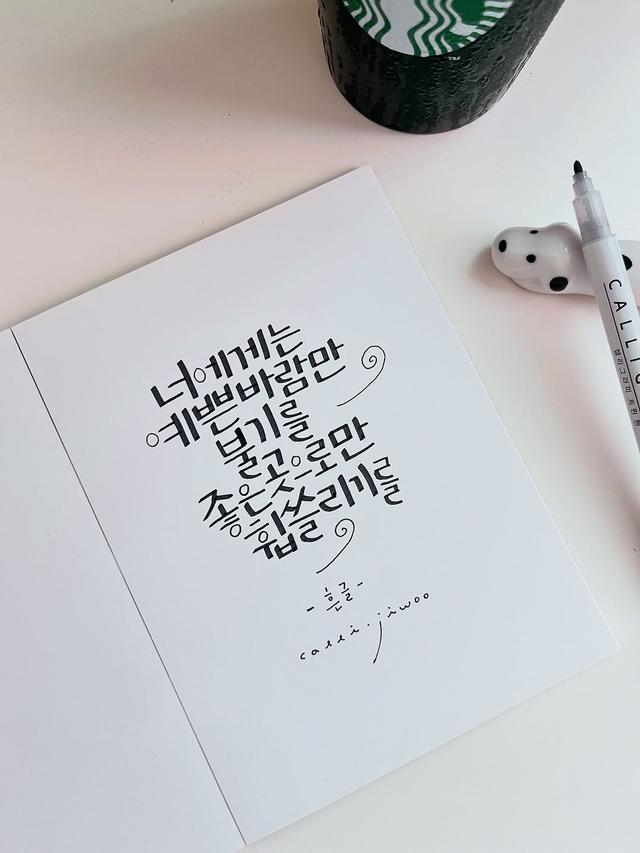 너에게는
예쁜바람만
불기를
좋은곳으로만
휩쓸리기를
-흔글-
calli.jiwoo
TM
캘리그라피